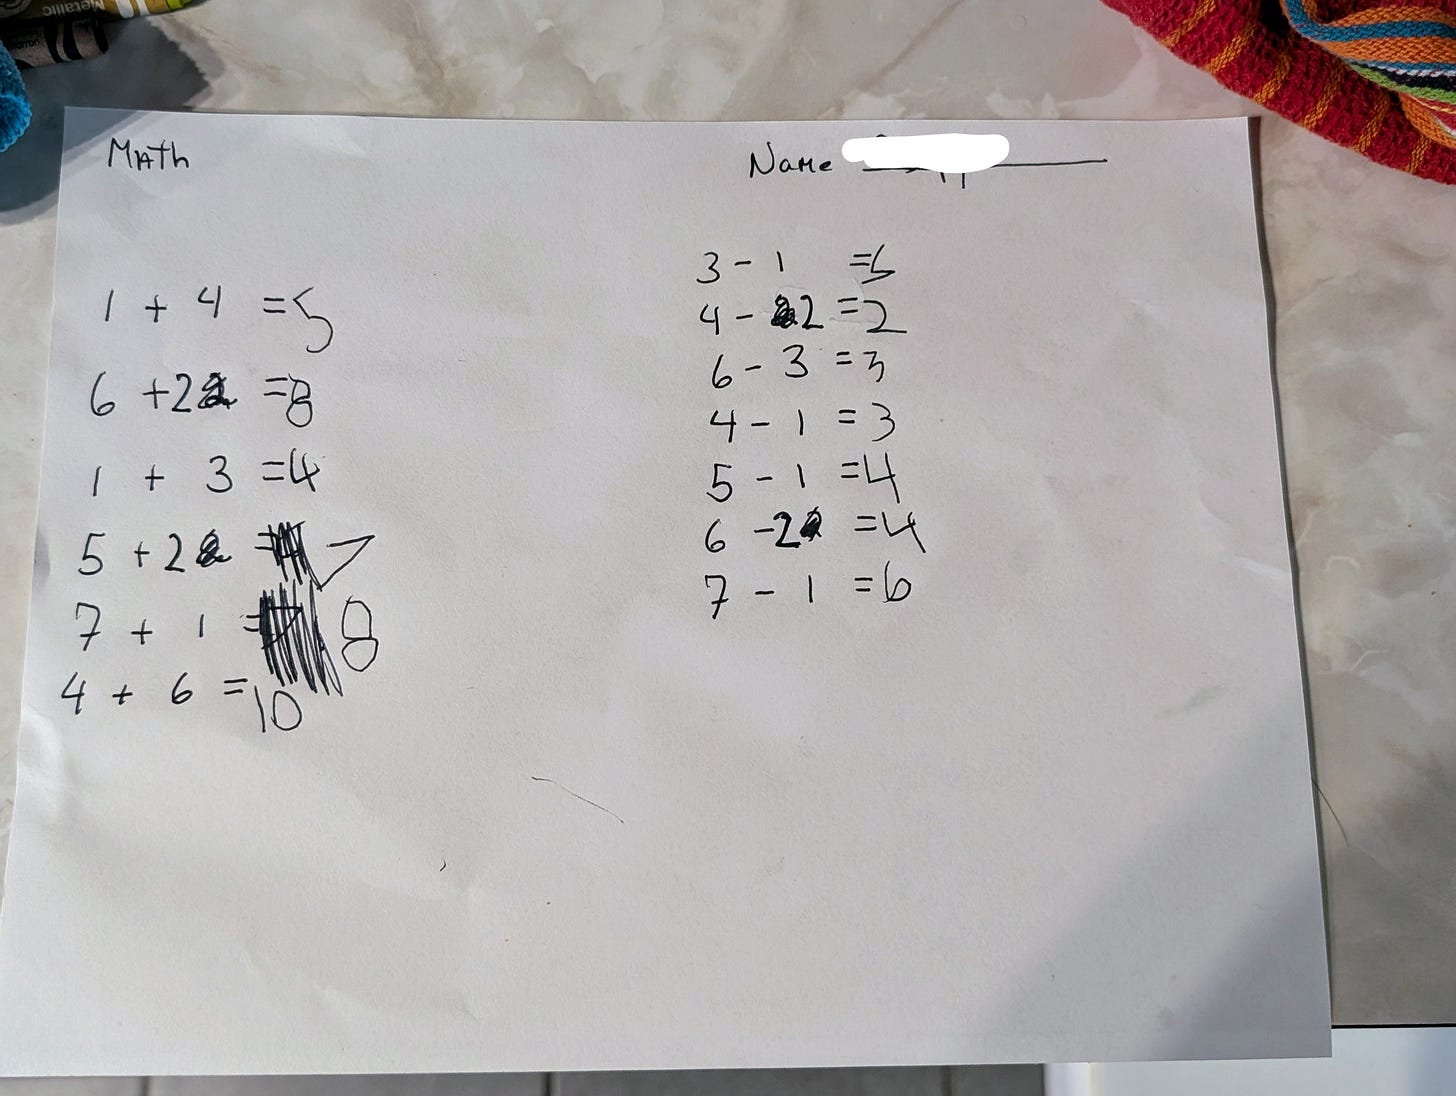 Metallic
Math
Name
1 + 4 = 5
6 + 2 = 8
1 + 3 = 4
5 + 2 = 7
7 + 1 = 8
4 + 6 = 10
3 - 1 = 5
4 - 2 = 2
6 - 3 = 3
4 - 1 = 3
5 - 1 = 4
6 - 2 = 4
7 - 1 = 6